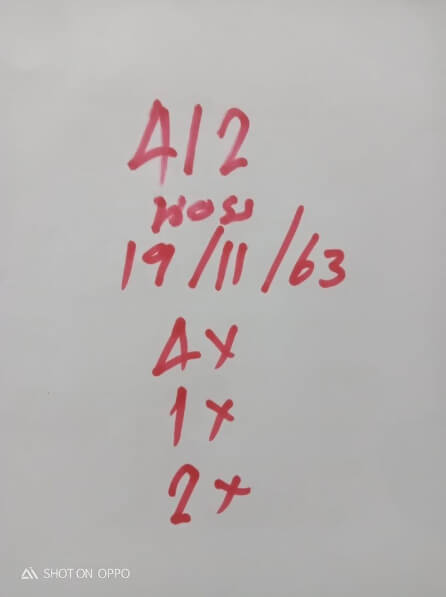 412
หอย
19/11/63
4x
1x
2x
SHOT ON OPPO